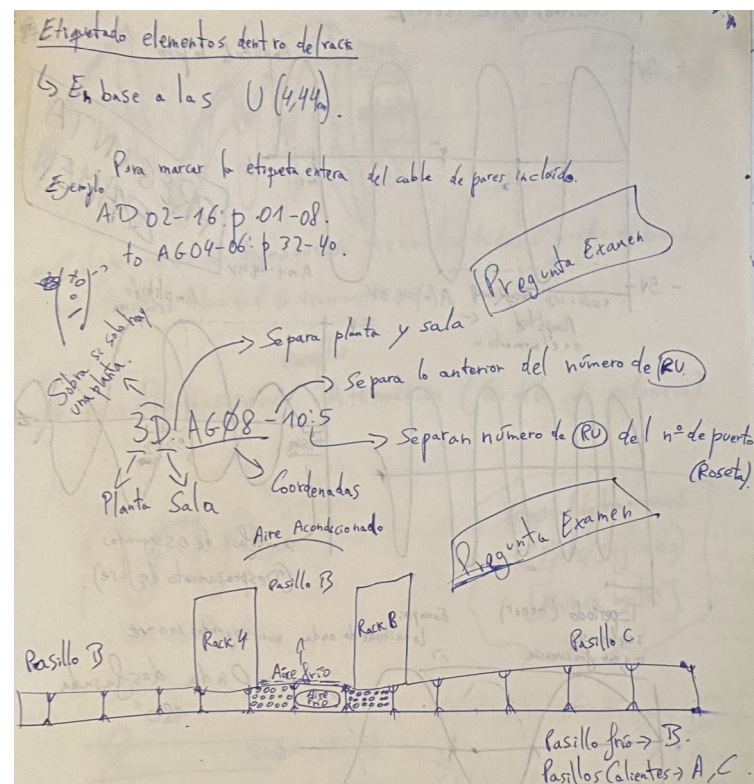 Etiquetado elementos dentro del rack
↳ En base a las U (4,44cm).
Para marcar la etiqueta entera del cable de pares incluido.
Ejemplo
AD02-16:p 01-08.
to AG04-06:p 32-40.
Pregunta Examen
Sobra si solo hay
una planta.
Separa planta y sala
Separa lo anterior del número de RU
3D.AG08-10:5
Separan número de RU del nº de puerto
(Roseta).
Planta Sala
Coordenadas
Aire Acondicionado
Pregunta Examen
Pasillo B
Rack 4
Rack B
Pasillo B
Aire frío
Aire
frío
Pasillo C
Pasillo frío → B.
Pasillos Calientes → A, C.